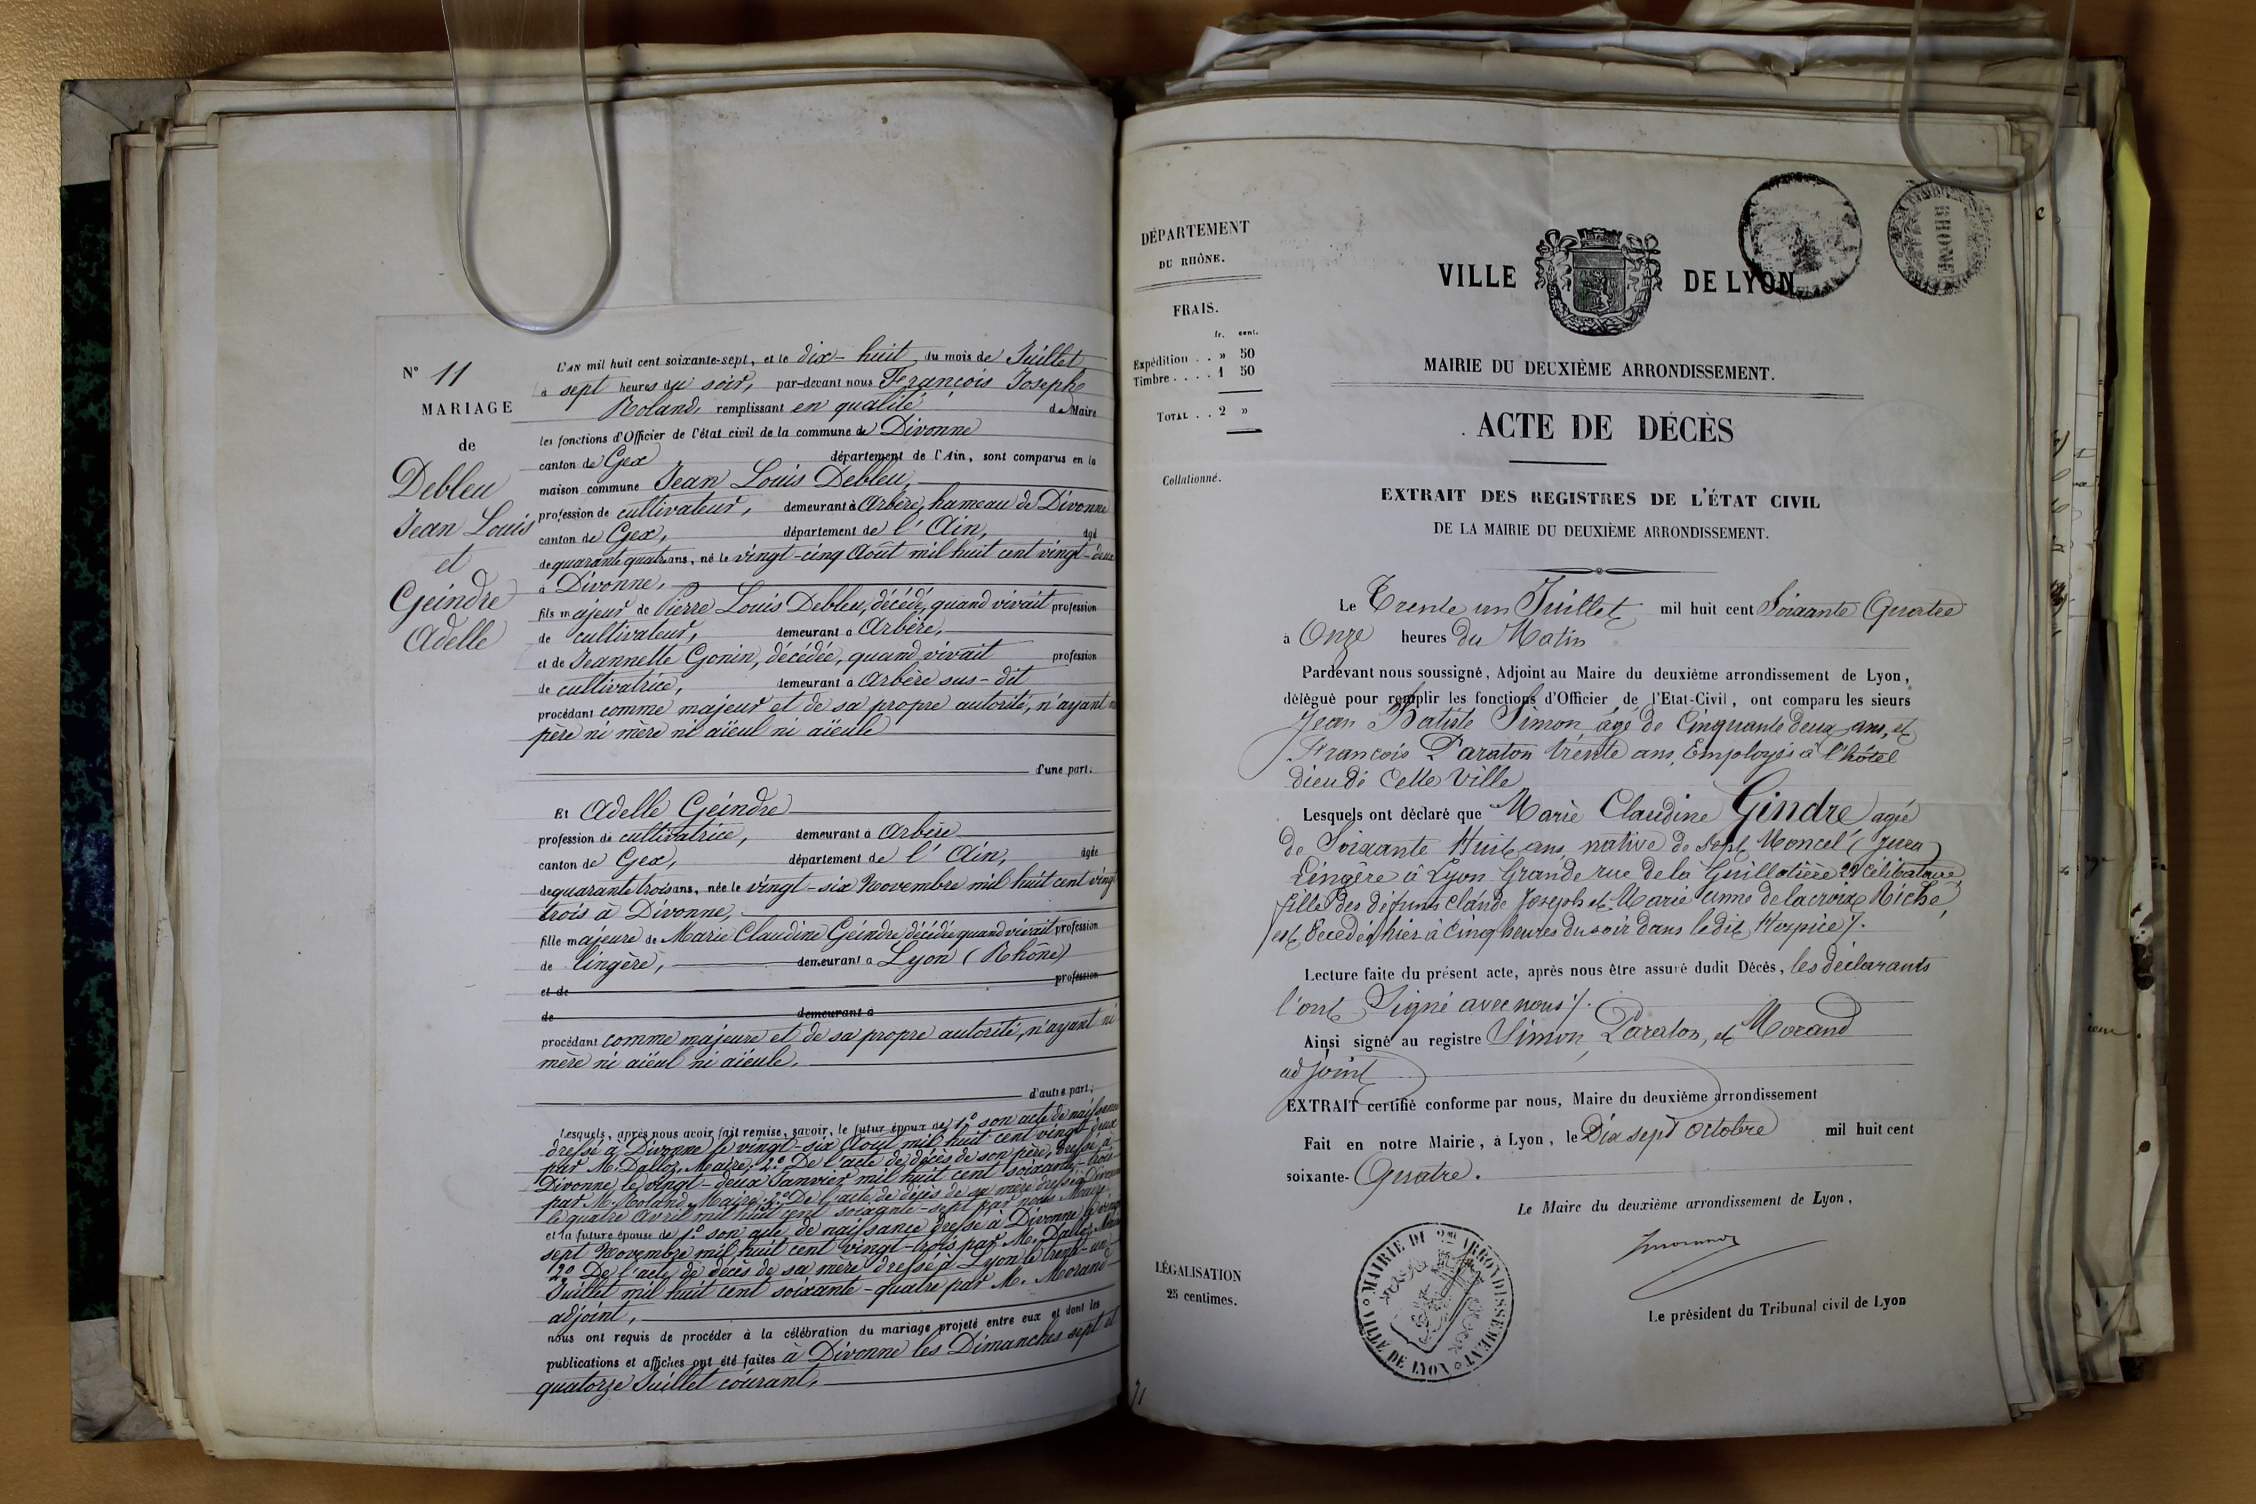 N° 11
MARIAGE
de
Debleu
Jean Louis
et
Geindre
Adelle
L'AN mil huit cent soixante-sept, et le dix-huit du mois de Juillet
à sept heures du soir, par-devant nous François Josephe
Roland, remplissant en qualité de Maire
les fonctions d'Officier de l'état civil de la commune de Divonne
canton de Gex département de l'Ain, sont comparus en la
maison commune Jean Louis Debleu,
profession de cultivateur, demeurant à Arbère, hameau de Divonne
canton de Gex, département de l'Ain, âgé
de quarante quatre ans, né le vingt-cinq Août mil huit cent vingt-deux
à Divonne,
fils majeur de Pierre Louis Debleu, décédé, quand vivait profession
de cultivateur, demeurant à Arbère,
et de Jeannette Gonin, décédée, quand vivait profession
de cultivatrice, demeurant à Arbère sus-dit
procédant comme majeur et de sa propre autorité, n'ayant ni
père ni mère ni aïeul ni aïeule
d'une part.
Et Adelle Geindre
profession de cultivatrice, demeurant à Arbère
canton de Gex, département de l'Ain, âgée
de quarante trois ans, née le vingt-six Novembre mil huit cent vingt
trois à Divonne,
fille majeure de Marie Claudine Geindre décédée quand vivait profession
de lingère, demeurant à Lyon (Rhône)
et de profession
de demeurant à
procédant comme majeure et de sa propre autorité, n'ayant ni
mère ni aïeul ni aïeule,
d'autre part;
Lesquels, après nous avoir fait remise, savoir, le futur époux de 1° son acte de naissance
dressé à Divonne le vingt-six Août mil huit cent vingt-deux
par M. Dalloz, Maire; 2° De l'acte de décès de son père, dressé à
Divonne le vingt-deux Janvier mil huit cent soixante-trois
par M. Roland, Maire; 3° De l'acte de décès de sa mère dressé à Divonne
le quatre Avril mil huit cent soixante-sept par nous Maire
et la future épouse de 1° son acte de naissance dressé à Divonne le vingt
sept Novembre mil huit cent vingt-trois par M. Dalloz Maire
2° De l'acte de décès de sa mère dressé à Lyon le trente-un
Juillet mil huit cent soixante-quatre par M. Morand
adjoint,
nous ont requis de procéder à la célébration du mariage projeté entre eux et dont les
publications et affiches ont été faites à Divonne les Dimanches sept et
quatorze Juillet courant,
DÉPARTEMENT
DU RHÔNE.
FRAIS.
fr. cent.
Expédition . . » 50
Timbre . . . . 1 50
TOTAL . . 2 »
Collationné.
LÉGALISATION
25 centimes.
RHONE
VILLE DE LYON
MAIRIE DU DEUXIÈME ARRONDISSEMENT.
ACTE DE DÉCÈS
EXTRAIT DES REGISTRES DE L'ÉTAT CIVIL
DE LA MAIRIE DU DEUXIÈME ARRONDISSEMENT.
Le Trente un Juillet mil huit cent Soixante Quatre
à Onze heures du Matin
Pardevant nous soussigné, Adjoint au Maire du deuxième arrondissement de Lyon,
délégué pour remplir les fonctions d'Officier de l'Etat-Civil, ont comparu les sieurs
Jean Batiste Simon âgé de Cinquante deux ans, et
François Paraton trente ans, Employés à l'hôtel
dieu de Cette Ville
Lesquels ont déclaré que Marie Claudine Gindre agée
de Soixante Huit ans, native de Sept Moncel (Jura)
Lingère à Lyon Grande rue de la Guillotière 29 Célibataire
fille des défunts Claude Joseph et Marie Anne de lacroix Riché,
est décédée hier à Cinq heures du soir dans le dit Hospice /.
Lecture faite du présent acte, après nous être assuré dudit Décès, les déclarants
l'ont Signé avec nous /.
Ainsi signé au registre Simon, Paraton, et Morand
adjoint
EXTRAIT certifié conforme par nous, Maire du deuxième arrondissement
Fait en notre Mairie, à Lyon, le Dix sept Octobre mil huit cent
soixante-Quatre.
Le Maire du deuxième arrondissement de Lyon,
MAIRIE DU 2me ARRONDISSEMENT
VILLE DE LYON
Le président du Tribunal civil de Lyon